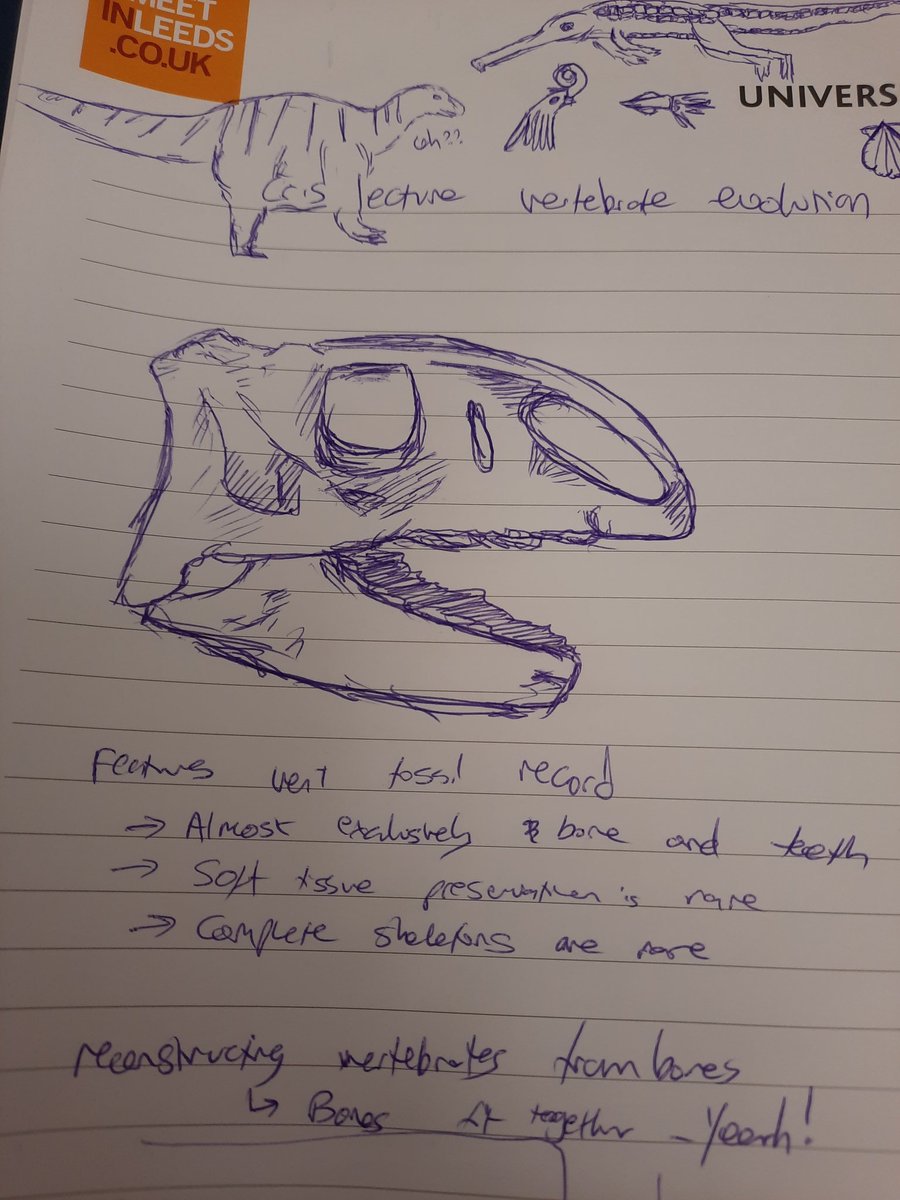 MEET
INLEEDS
.CO.UK
UNIVERS
uh??
Cris lecture vertebrate evolution
Features vert fossil record
→ Almost exclusively bone and teeth
→ Soft tissue preservation is rare
→ Complete skeletons are rare
reconstructing vertebrates from bones
↳ Bones fit together - Yeah!